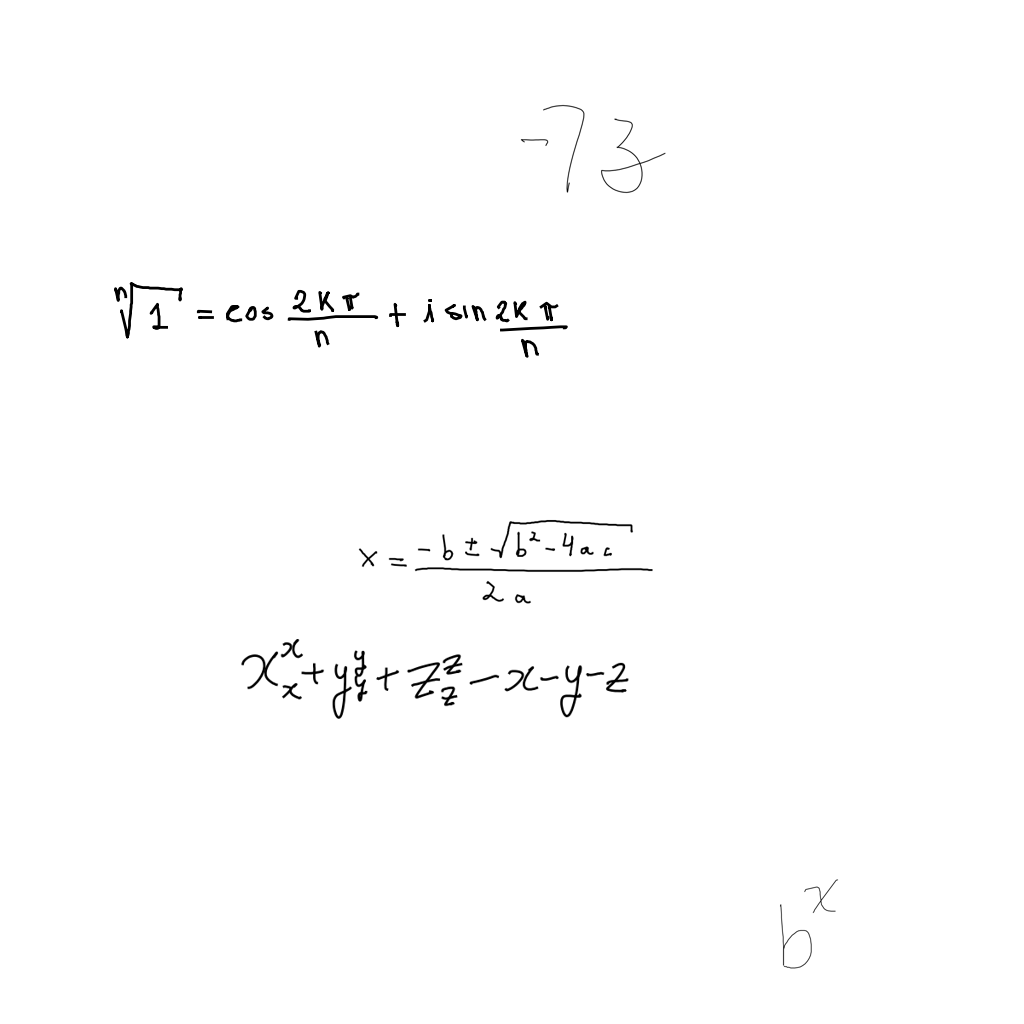 -7z
\sqrt[n]{1} = cos \frac{2kπ}{n} + i sin \frac{2kπ}{n}
x = \frac{-b ± \sqrt{b^2 - 4ac}}{2a}
x_x^x + y_y^y + z_z^z - x - y - z
b^x